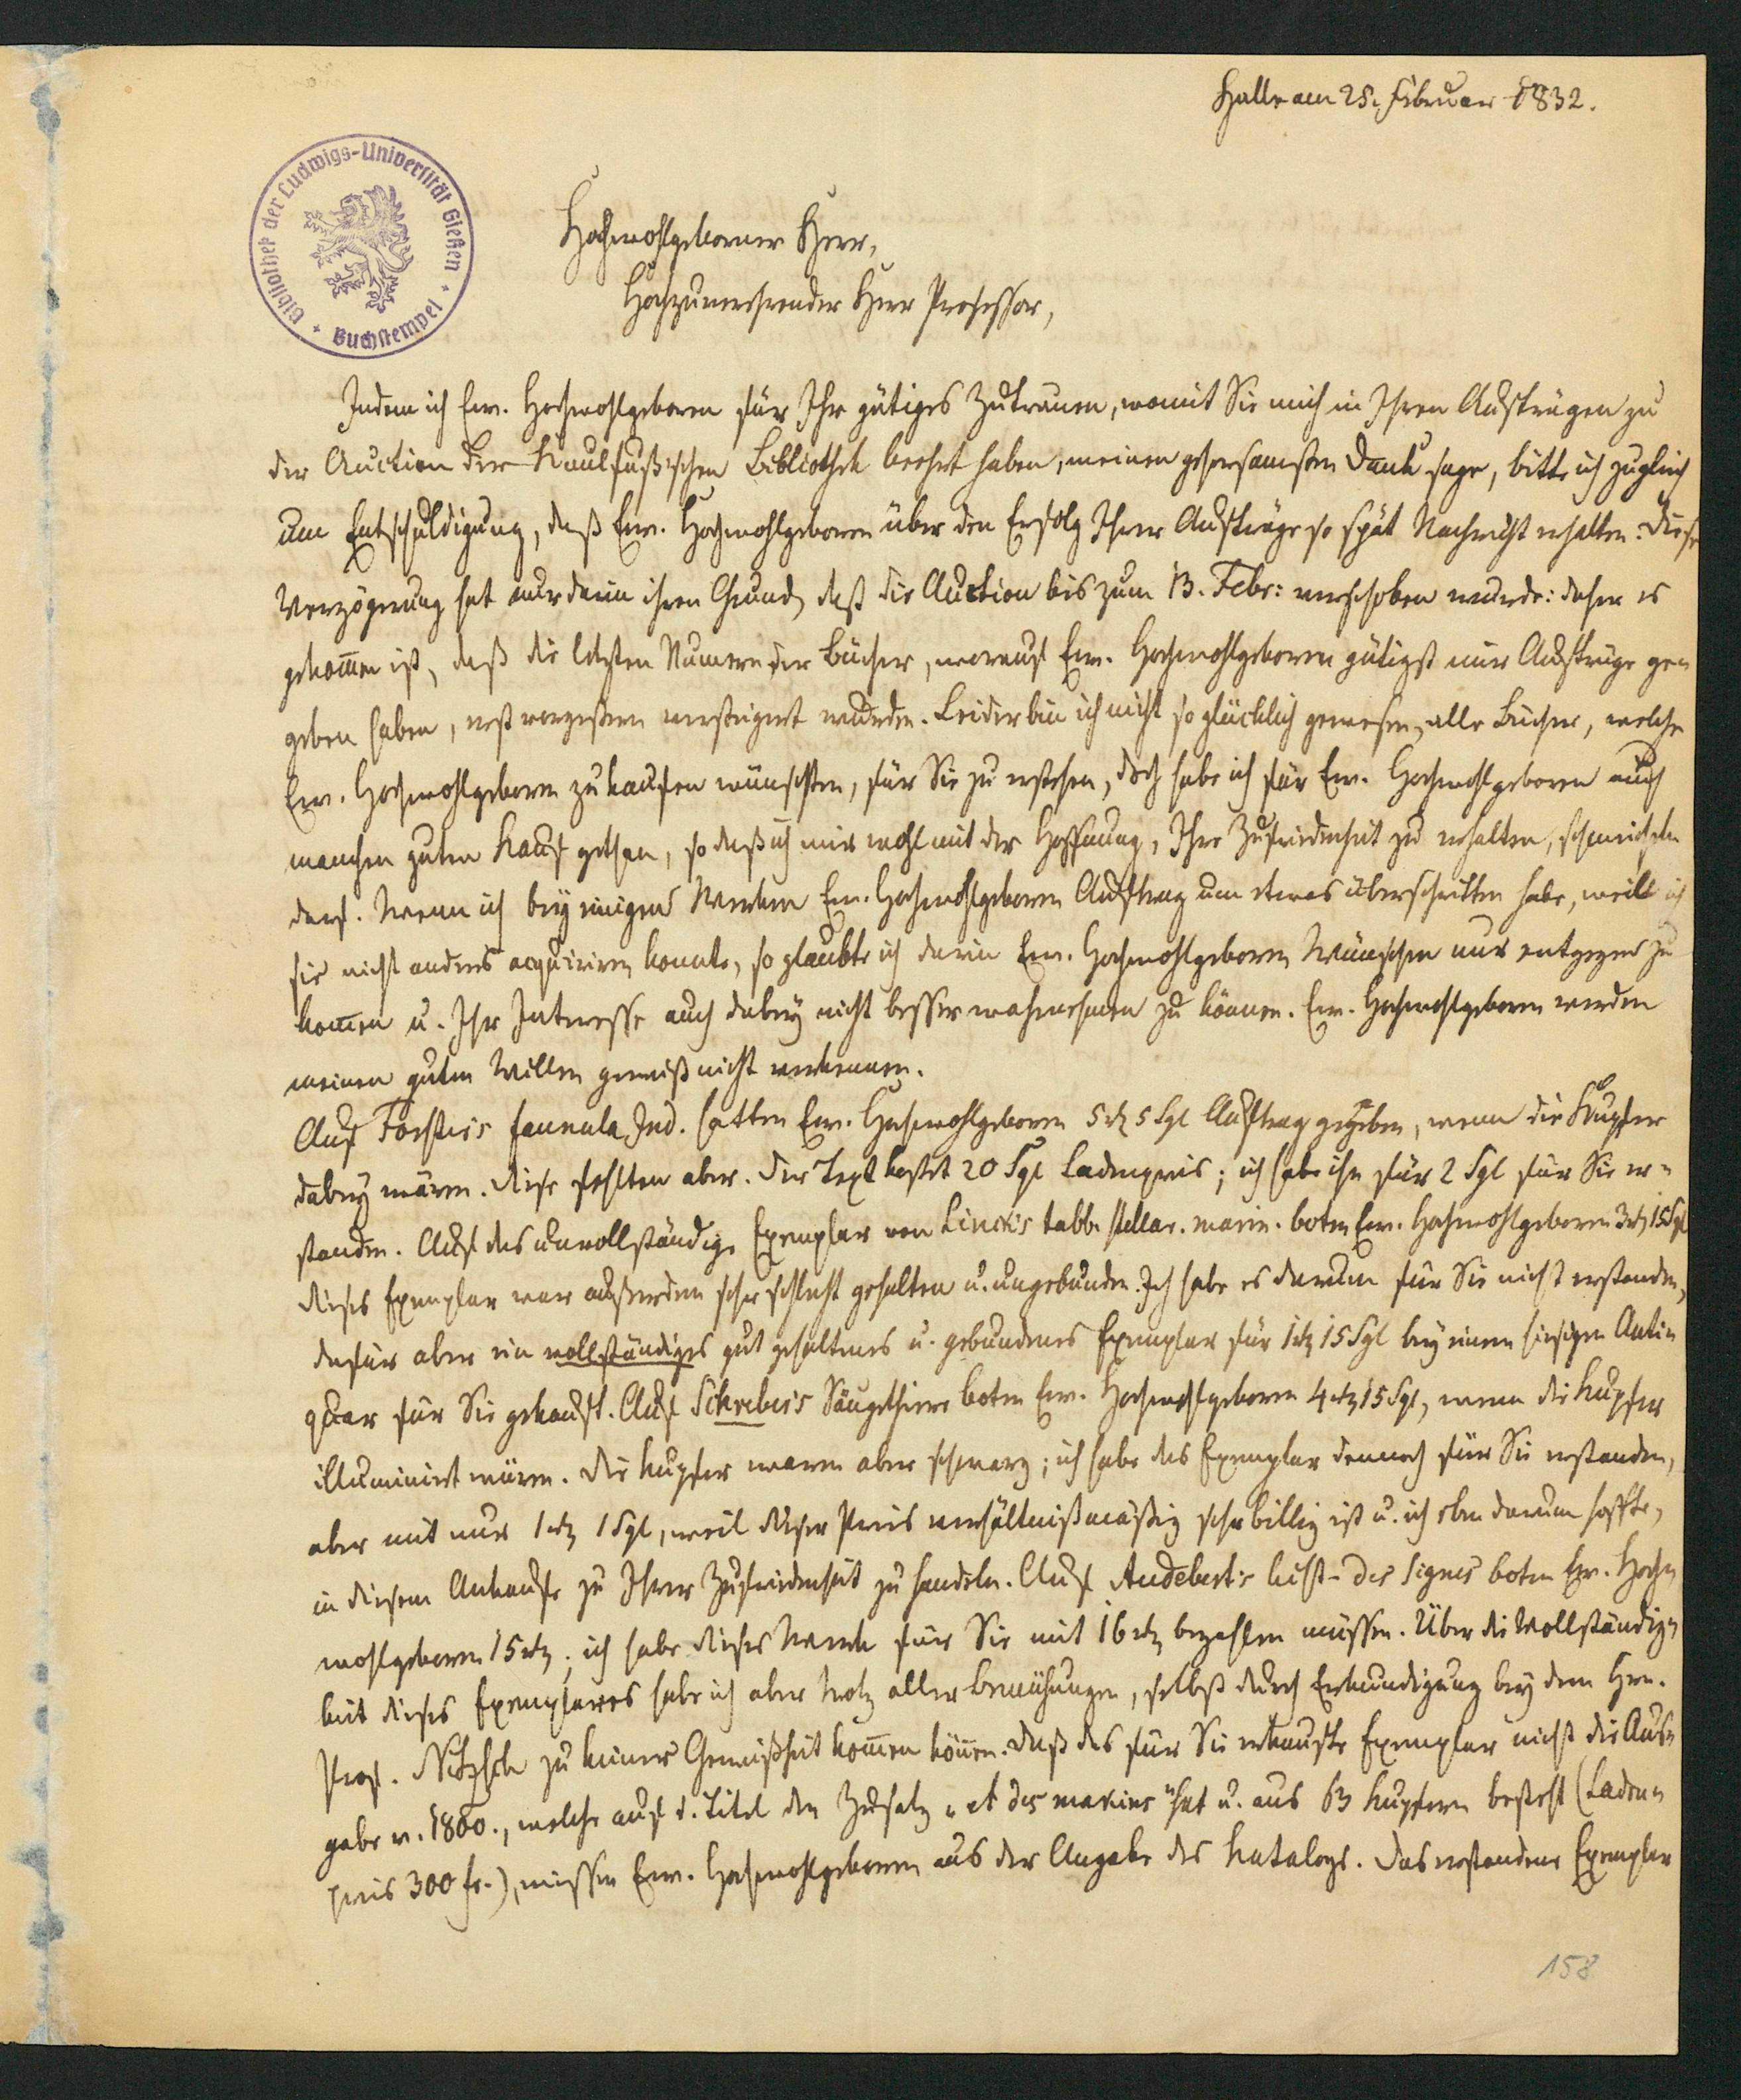 Halle am 25. Februar 1832.
Bibliothek der Ludwigs-Universität Gießen
Buchstempel
Hochwohlgeborner Herr,
Hochzuverehrender Herr Professor,
Indem ich Ew. Hochwohlgeboren für Ihr gütiges Zutrauen, womit Sie mich in Ihren Aufträgen zu
der Auction der Kaulfußischen Bibliothek beehrt haben, meinen gehorsamsten Dank sage, bitte ich zugleich
um Entschuldigung, daß Ew. Hochwohlgeboren über den Erfolg Ihrer Aufträge so spät Nachricht erhalten. Diese
Verzögerung hat nur darin ihren Grund, daß die Auction bis zum 13. Febr: verschoben wurde: daher es
gekom̅en ist, daß die letzten Numern der Bücher, worauf Ew. Hochwohlgeboren gütigst mir Aufträge ge-
geben haben, erst vorgestern versteigert wurden. Leider bin ich nicht so glücklich gewesen, alle Bücher, welche
Ew. Hochwohlgeboren zu kaufen wünschten, für Sie zu erstehen, doch habe ich für Ew. Hochwohlgeboren auch
manchen guten Kauf gethan, so daß ich mir wohl mit der Hoffnung, Ihre Zufriedenheit zu erhalten, schmeicheln
darf. Wenn ich bey einigen Werken Ew. Hochwohlgeboren Auftrag um etwas überschritten habe, weil ich
sie nicht anders acquiriren konnte, so glaubte ich darin Ew. Hochwohlgeboren Wünschen nur entgegen zu
kom̅en u. Ihr Interesse auch dabey nicht besser wahrnehmen zu können. Ew. Hochwohlgeboren werden
meinen guten Willen gewiß nicht verkennen.
Auf Forster's faunula Ind. hatten Ew. Hochwohlgeboren 5 rtl 5 Sgl Auftrag gegeben, wenn die Kupfer
dabey wären. Diese fehlten aber. Der Text kostet 20 Sgl Ladenpreis; ich habe ihn für 2 Sgl für Sie er-
standen. Auf das unvollständige Exemplar von Linck's tabb. stellar. marin. boten Ew. Hochwohlgeboren 3 rtl 15 Sgl
dieses Exemplar war außerdem sehr schlecht gehalten u. ungebunden. Ich habe es darum für Sie nicht erstanden,
dafür aber ein vollständiges gut gehaltenes u. gebundenes Exemplar für 1 rtl 15 Sgl bey einem hiesigen Anti-
quar für Sie gekauft. Auf Schreber's Säugethiere boten Ew. Hochwohlgeboren 4 rtl 15 Sgl, wenn die Kupfer
illuminirt wären. Die Kupfer waren aber schwarz; ich habe das Exemplar dennoch für Sie erstanden,
aber mit nur 1 rtl 1 Sgl, weil dieser Preis verhältnißmäßig sehr billig ist u. ich eben darum hoffte,
in diesem Ankaufe zu Ihrer Zufriedenheit zu handeln. Auf Audebert's hist. des singes boten Ew. Hoch-
wohlgeboren 15 rtl; ich habe dieses Werk für Sie mit 16 rtl bezahlen müssen. Über die Vollständig-
keit dieses Exemplares habe ich aber trotz aller Bemühungen, selbst durch Erkundigung bey dem Hrn.
Prof. Nitzsch zu keiner Gewißheit kom̅en können. Daß das für Sie erkaufte Exemplar nicht die Aus-
gabe v. 1800., welche auf d. Titel den Zusatz „et des makis" hat u. aus 63 Kupfern besteht (Laden-
preis 300 fr.), wissen Ew. Hochwohlgeboren aus der Angabe des Katalogs. Das erstandene Exemplar
158